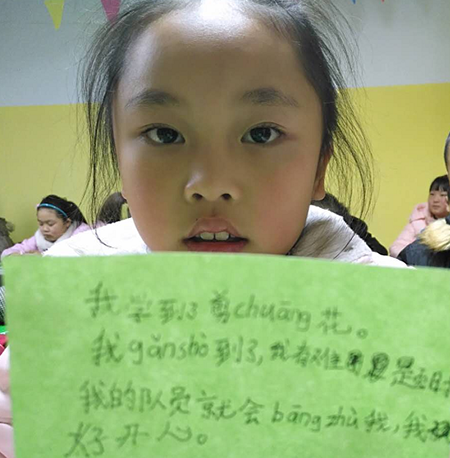 我学到了剪chuāng花。
我gǎnshò到了,我有难
我的队员就会bāng zhù我,我
太开心。